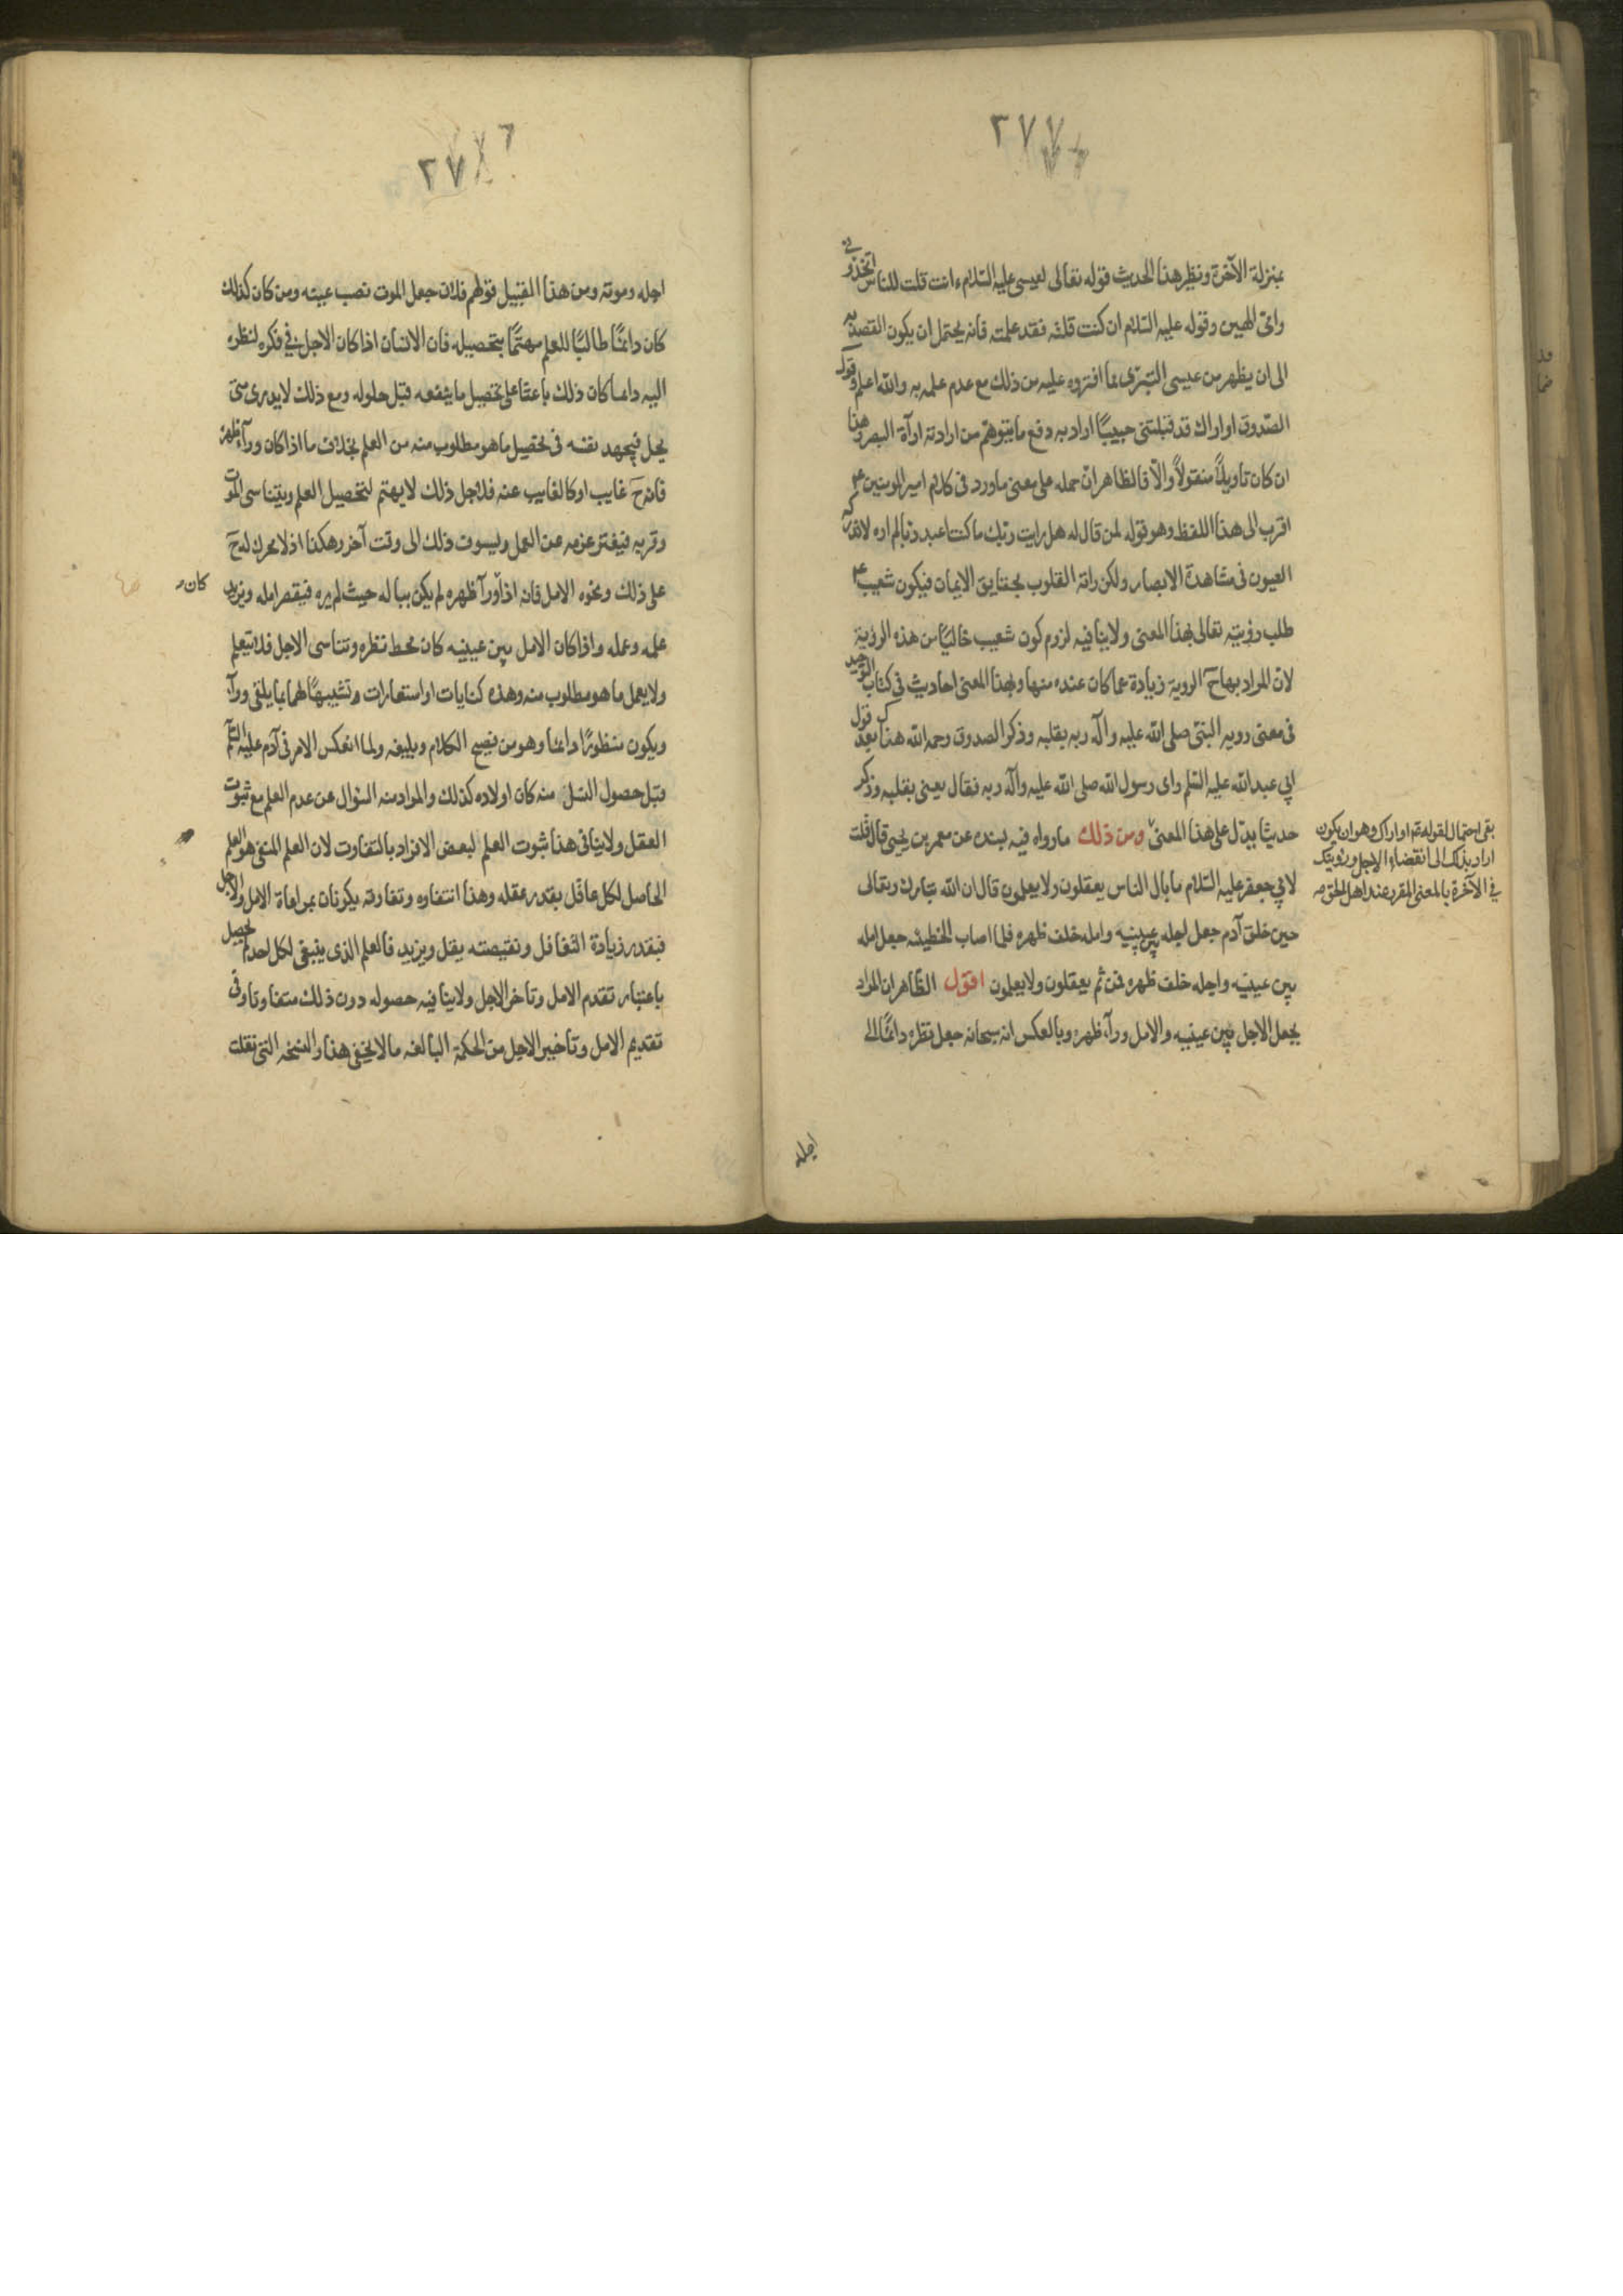 ٣٧٧
بمنزلة الآخرة ونظير هذا الحديث قوله تعالى لعيسى عليه السلام ءانت قلت للناس اتخذونى
وامّى الهين وقوله عليه السلام ان كنت قلته فقد علمته فانه يحتمل ان يكون القصد به
الى ان يظهر من عيسى التبرّى مما افتروه عليه من ذلك مع عدم علمه به والله اعلم وقول
الصّدوق او اراك قد قبلتنى حبيبًا اراد به دفع ما يتوهّم من ارادته ارآة البصر وهذا
ان كان تاويلاً منقولاً والّا فالظاهر انّ حمله على معنى ما ورد فى كلام امير المومنين ع
اقرب الى هذا اللفظ وهو قوله لمن قال له هل رايت ربّك ما كنت اعبد ربّا لم اره لا تدركه
العيون فى مشاهدة الابصار ولكن راته القلوب بحقايق الايمان فيكون شعيب ع
طلب رؤيته تعالى بهذا المعنى ولا ينافيه لزوم كون شعيب خاليًا من هذه الرؤية
لانّ المراد بها حَ الروية زيادة عما كان عنده منها ولهذا المعنى احاديث فى كتاب التوحيد
فى معنى روية النبىّ صلى الله عليه وآله ربه بقلبه وذكر الصدوق رحمه الله هناك بعد قول
ابي عبد الله عليه السّلم راى رسول الله صلى الله عليه وآله ربه فقال يعنى بقلبه وذكر
حديثا يدّل على هذا المعنى ومن ذلك ما رواه فيه بسنده عن معمر بن يحيى قال قلت
لابي جعفر عليه السّلام ما بال الناس يعقلون ولا يعلمون قال ان الله تبارك وتعالى
حين خلق آدم جعل اجله بين عينيه وامله خلف ظهره فلما اصاب الخطيئه جعل امله
بين عينيه واجله خلف ظهره فمن ثم يعقلون ولا يعلمون اقول الظاهر ان المراد
بجعل الاجل بين عينيه والامل ورآء ظهره وبالعكس انه سبحانه جعل نظره دائمًا الى
بقى احتمال لقوله تم او اراك وهو ان يكون
اراد بذلك الى انقضاء الاجل ورؤيتك
فى الآخرة بالمعنى المقرر عند اهل الحق منه
اجله
٣٧
اجله وموته ومن هذا القبيل قولهم فلان جعل الموت نصب عينه ومن كان كذلك
كان دائمًا طالبًا للعلم مهتمًّا بتحصيله فان الانسان اذا كان الاجل فى فكره لنظره
اليه دايما كان ذلك باعثا على تحصيل ما ينفعه قبل حلوله ومع ذلك لا يدرى متى
يحل فيجهد نفسه فى تحصيل ما هو مطلوب منه من العلم بخلاف ما اذا كان ورآء ظهره
فانه حَ غايب او كالغايب عنه فلاجل ذلك لا يهتم لتحصيل العلم ويتناسى الموت
وقربه فيفتر عزمه عن العمل ويسوف ذلك الى وقت آخر وهكذا اذ لا محرك له حَ
على ذلك ونحوه الامل فانه اذا ورآ ظهره لم يكن بباله حيث لم يره فيقصر امله ويزيد
كان
علمه وعمله واذا كان الامل بين عينيه كان محط نظره وتناسى الاجل فلا يتعلم
ولا يعمل ما هو مطلوب منه وهذه كنايات او استعارات وتشبيهًا لهما بما يلقى ورآء
ويكون منظورًا دائما وهو من فصيح الكلام وبليغه ولما انعكس الامر فى آدم عليه السّلم
قبل حصول النسل منه كان اولاده كذلك والمراد منه السؤال عن عدم العلم مع ثبوت
العقل ولا ينافى هذا ثبوت العلم لبعض الافراد بالتفاوت لان العلم المنفى هو العلم
الحاصل لكل عاقل بقدر عقله وهذا انتفاوه وتفاوته يكونان بمراعاة الامل والاجل
فبقدر زيادة التغافل ونقيصته يقل ويزيد فالعلم الذى ينبغى لكل احد لم يحصل
باعتبار تقدم الامل وتاخر الاجل ولا ينافيه حصوله دون ذلك متفاوتا وفى
تقديم الامل وتاخير الاجل من الحكمة البالغه ما لا يخفى هذا والنسخه التى نقلت